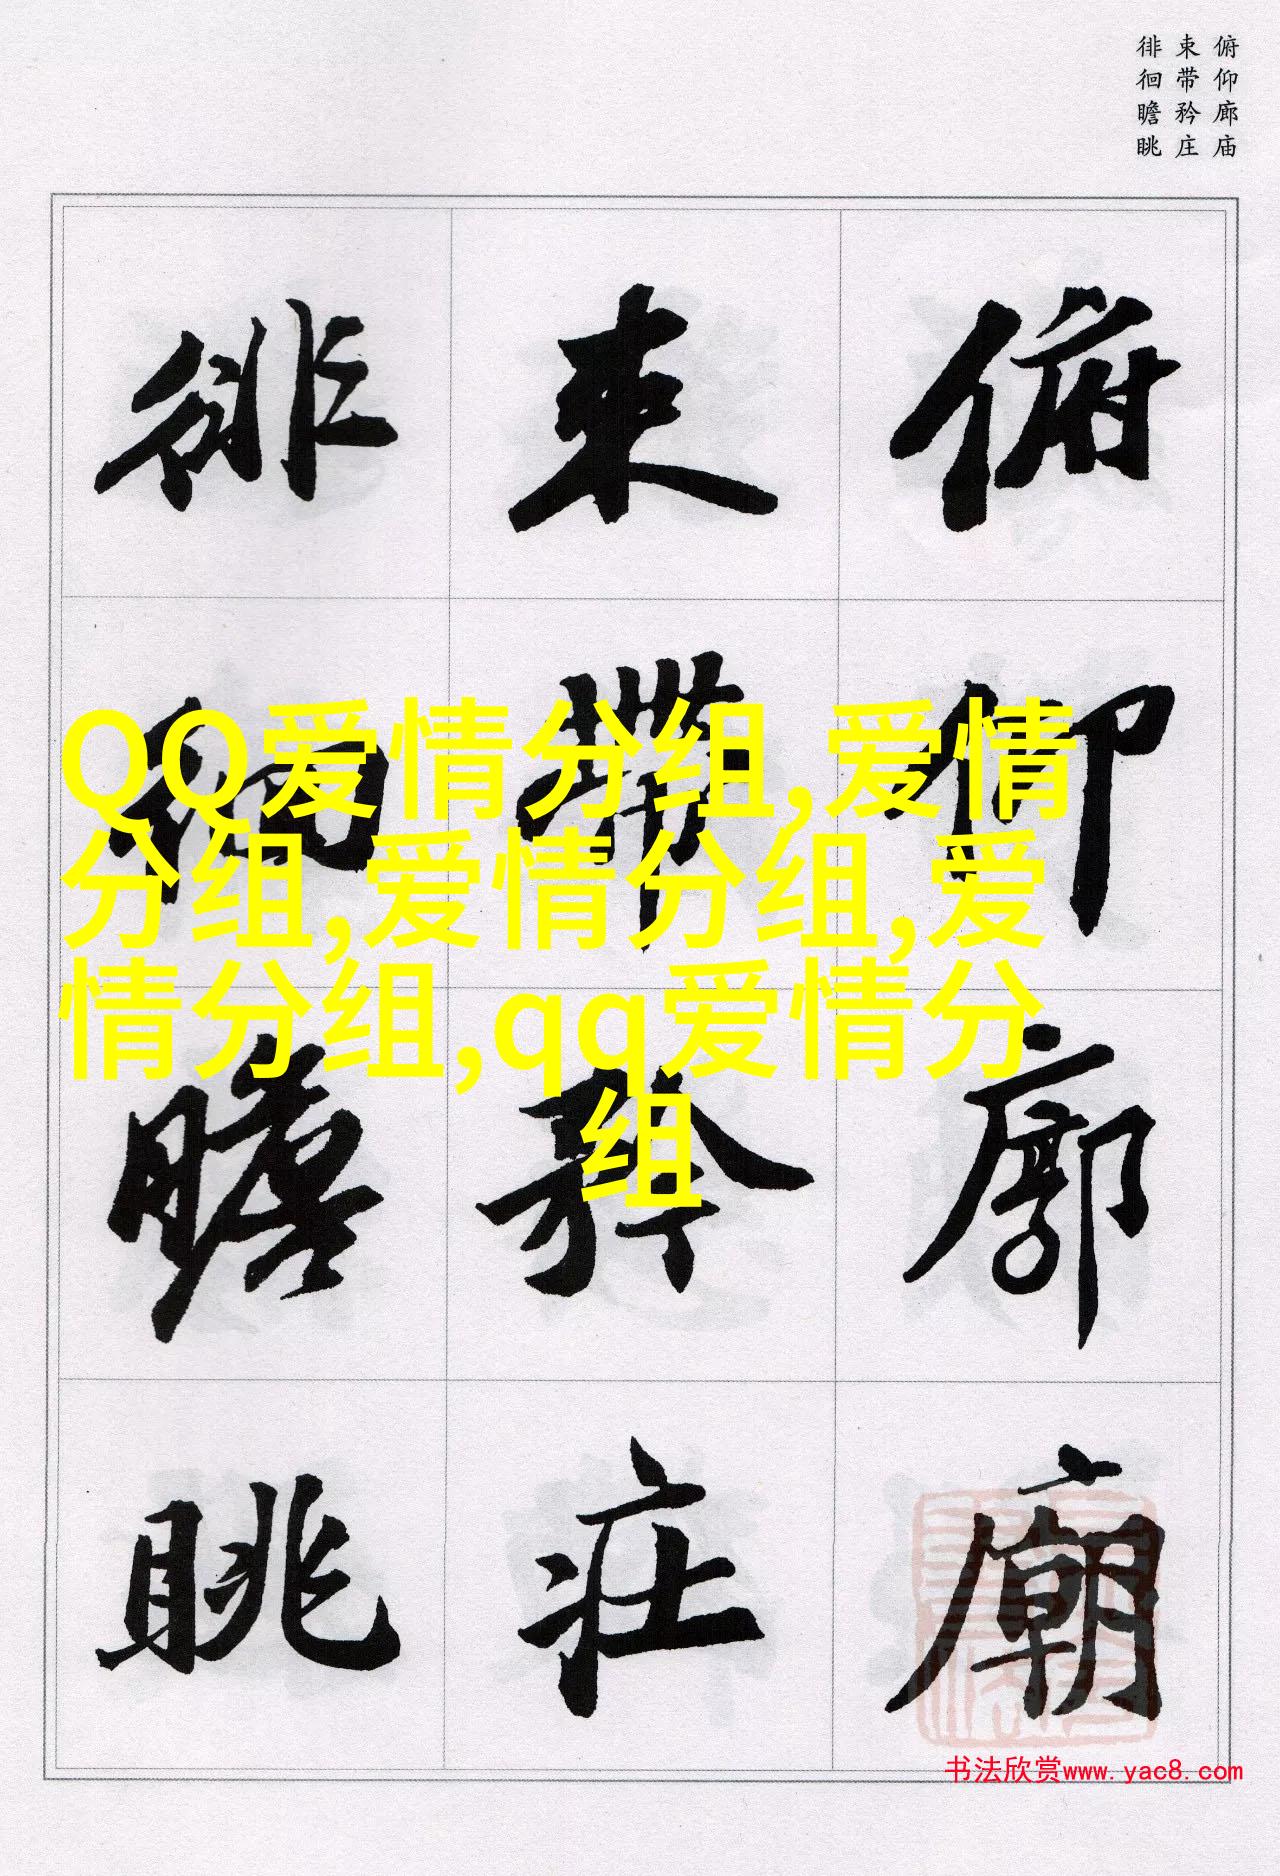 俯仰廊庙
束带矜庄
徘徊瞻眺
俯仰廊廟
束帶矜莊
徘徊瞻眺
QQ爱情分组,爱情
分组,爱情分组,爱
情分组,qq爱情分
组
书法欣赏www.yac8.com